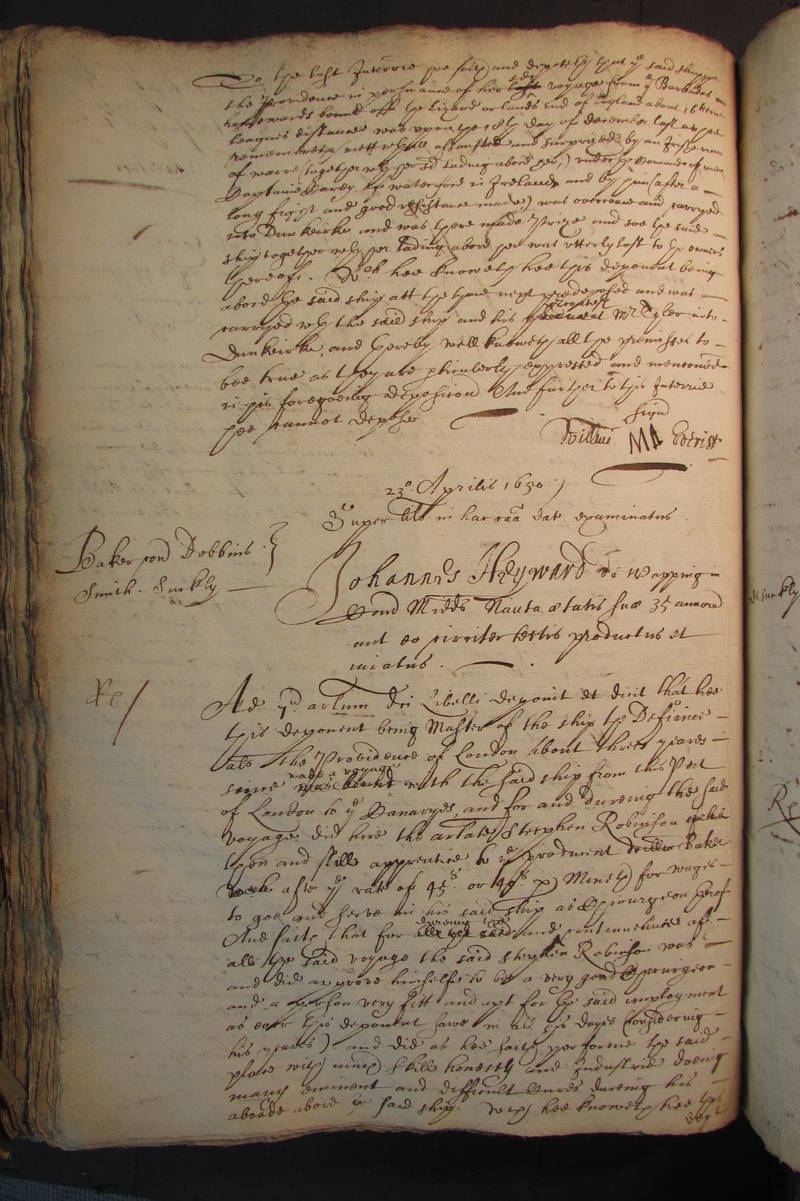 To the last Interrie hee saith and deposeth that the said shipp
the Providence in pursuance of her voyage from ye Barbados
homewards bound off the Lizard or lands end of England about
leagues distance was upon the 18th day of december last as hee
remembreth mett withall assaulted and surprized by an Irish man
of warr (together with her lading abord her,) under the Comand of one
Captaine Darcy of waterford in Ireland and by him (after a
long fight and good resistance made) was overcome and carryed
into Dunkeirke and was there made Prize and soe the said
ship together with her lading abord her was utterly lost to the owners
thereof. Wch hee knoweth hee this deponent being
abord the said ship att the tyme next predeposed and was
carryed with the said ship and his Mr Tyler into
Dunkeirke and hereby well knoweth all the premisses to
bee true as they are perticulerly expressed and mentioned
in his foregoeing deposicon And further to this Interrie
hee cannot depose
signd
Willmi MA Everist
23o Aprilis 1650
Super libo in hac caa dat examinatus
Baker con Dobbins
Smith. Suckly
Johannes Heyward de Wapping in
Com Midds Nauta ætatis suæ 35 annorum
aut eo circiter testis productus et
iuratus.
Re/
Ad pm artlum dci Libelli deponit et dicit That hee
this deponent being Master of the ship the Defiance
als the Providence of London about three yeares
since made a voyage with the said ship from this Port
of London to ye Canaryes, and for and dureing the said
voyage did hire the arlate Stephen Robinson
then and still apprentice to ye producent Willm Baker
after ye rate of 45s or p Moneth for wages
to goe and serve in his said ship as Chyrurgeon thereof
And saith that for dureing the and continuance of
all the said voyage the said Stephen Robinson was
and did approve himselfe to be a very good Chyrurgeon
and a person very fitt and apt for the said imployment
as ever this deponent sawe in all his dayes (considering
his yeares) and did as hee saith performe the said
place with much skill honesty and industrie doeing
many eminent and difficult Cures dureing his
aboade abord ye said ship. Wch hee knoweth hee this
dept
Suckly
Re